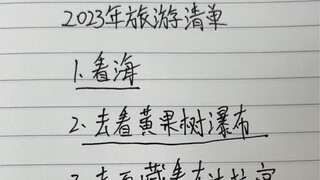 2023年旅游清单
1.看海
2.去看黄果树瀑布